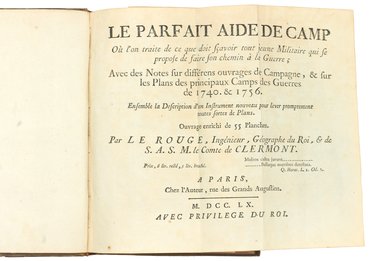 LE PARFAIT AIDE DE CAMP
Où l'on traite de ce que doit sçavoir tout jeune Militaire qui se
propose de faire son chemin à la Guerre;
Avec des Notes sur différens ouvrages de Campagne, & sur
les Plans des principaux Camps des Guerres
de 1740. & 1756.
Ensemble la Description d'un Instrument nouveau pour lever promptement
toutes sortes de Plans.
Ouvrage enrichi de 55 Planches.
Par LE ROUGE, Ingénieur, Géographe du Roi, & de
S. A. S. M. le Comte de CLERMONT.
Multos castra juvant..........
..........Bellaque matribus detestata.
Q. Horat. L. 1. Od. 1.
Prix, 6 liv. relié, 5 liv. broché.
A PARIS,
Chez l'Auteur, rue des Grands Augustins.
M. DCC. LX.
AVEC PRIVILEGE DU ROI.